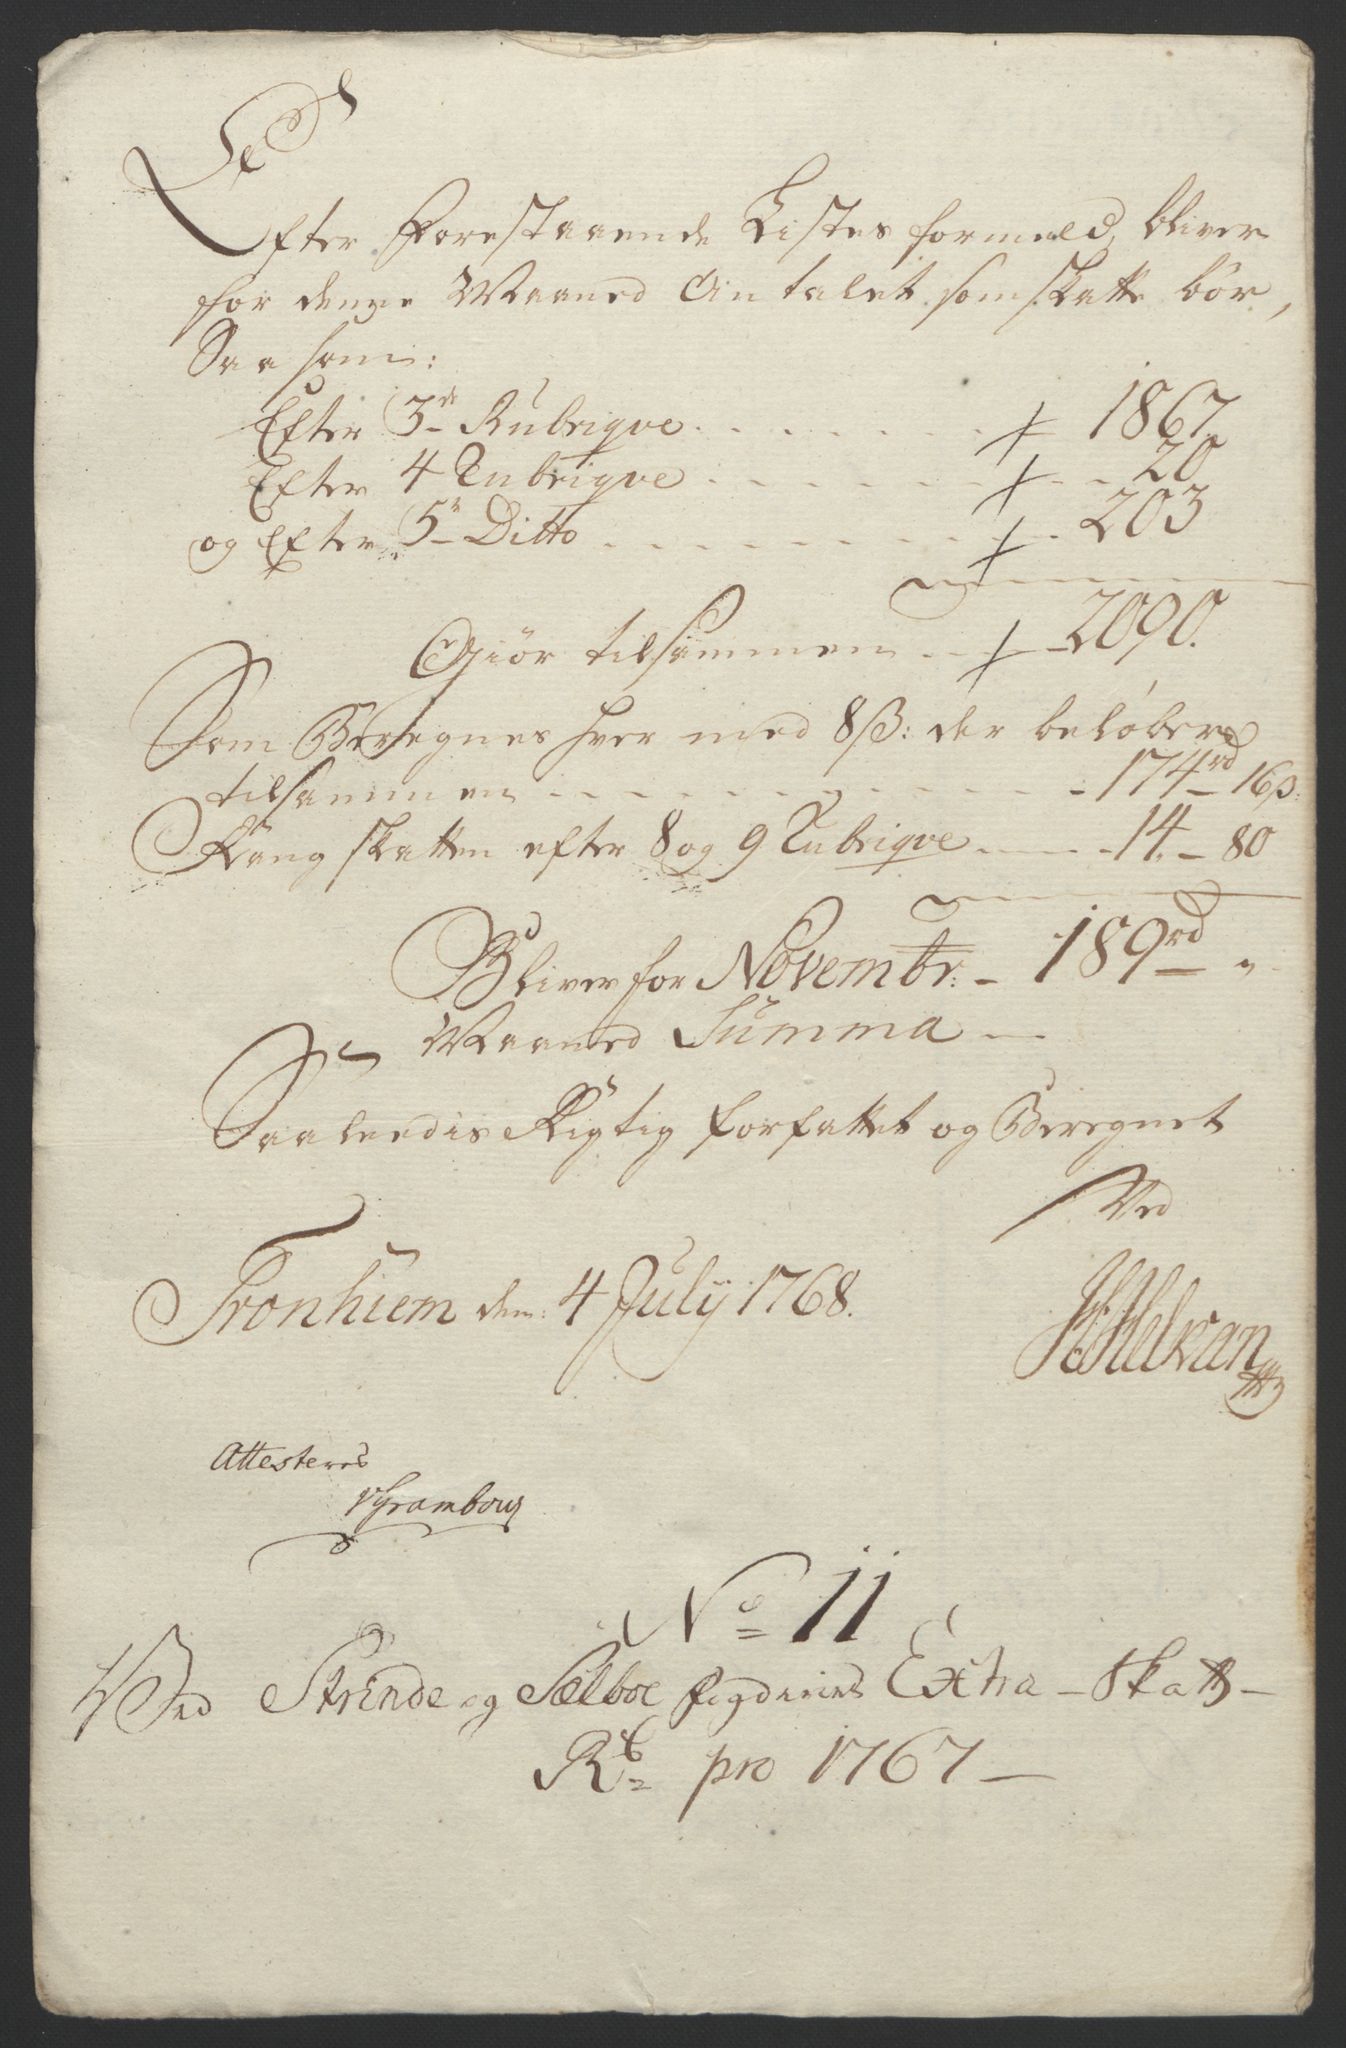 Efter Forestaaende Listes formeld, bliver
for denne Maaned Antalet som skatte bör,
Saasom:
Efter 3de Rubriqve . . . . . . . 1867.
Efter 4 Rubriqve . . . . . . 20
og Efter 5te Ditto . . . . . . . . 203
Giör tilsammen . . . 2090.
Som Beregnes hver med 8ß: der beløber
tilsammen . . . . . . . . . . . 174rd 16ß:
Rang skatten efter 8 og 9 Rubriqve . . . 14. - 80
Bliver for Novembr: - 189rd "
Maaned Summa -
Saaleedis Rigtig forfattet og Beregnet
Ved
Tronhiem den: 4 July 1768.
Attesteres
Grambow
No 11
Ved Strinde og Sælboe fogderies Extra-Skatt-
R: pro 1767 -